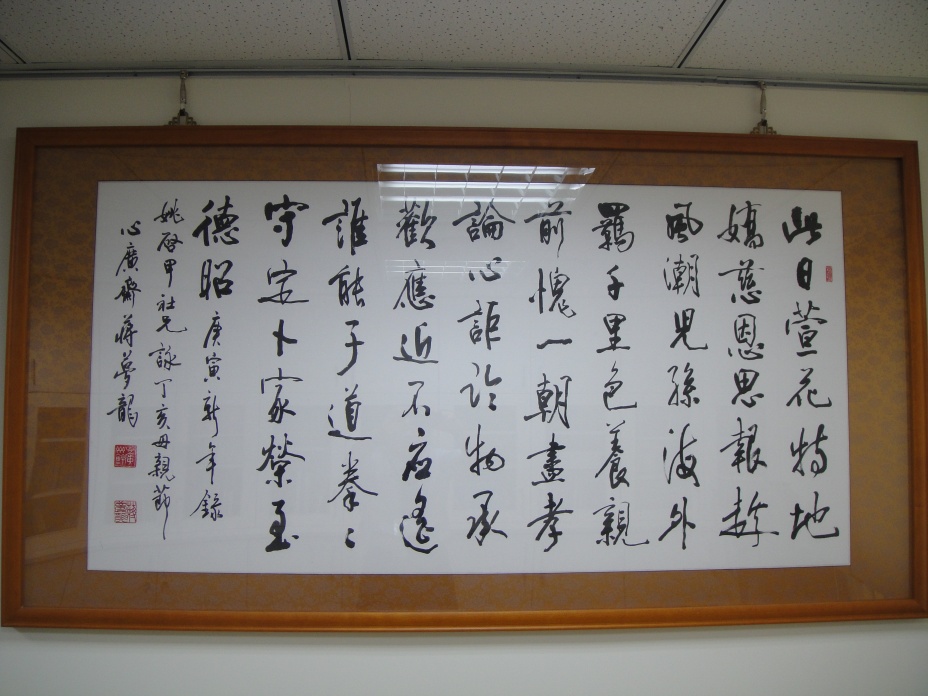 此日萱花特地
嬌慈恩思報趁
風潮兒孫海外
羈千里色養親
前愧一朝盡孝
論心詎論物承
歡應近不應遙
誰能子道拳〻
守定卜家榮至
德昭 庚寅新年錄
姚啓甲社兄詠丁亥母親節
心廣齋蔣夢龍